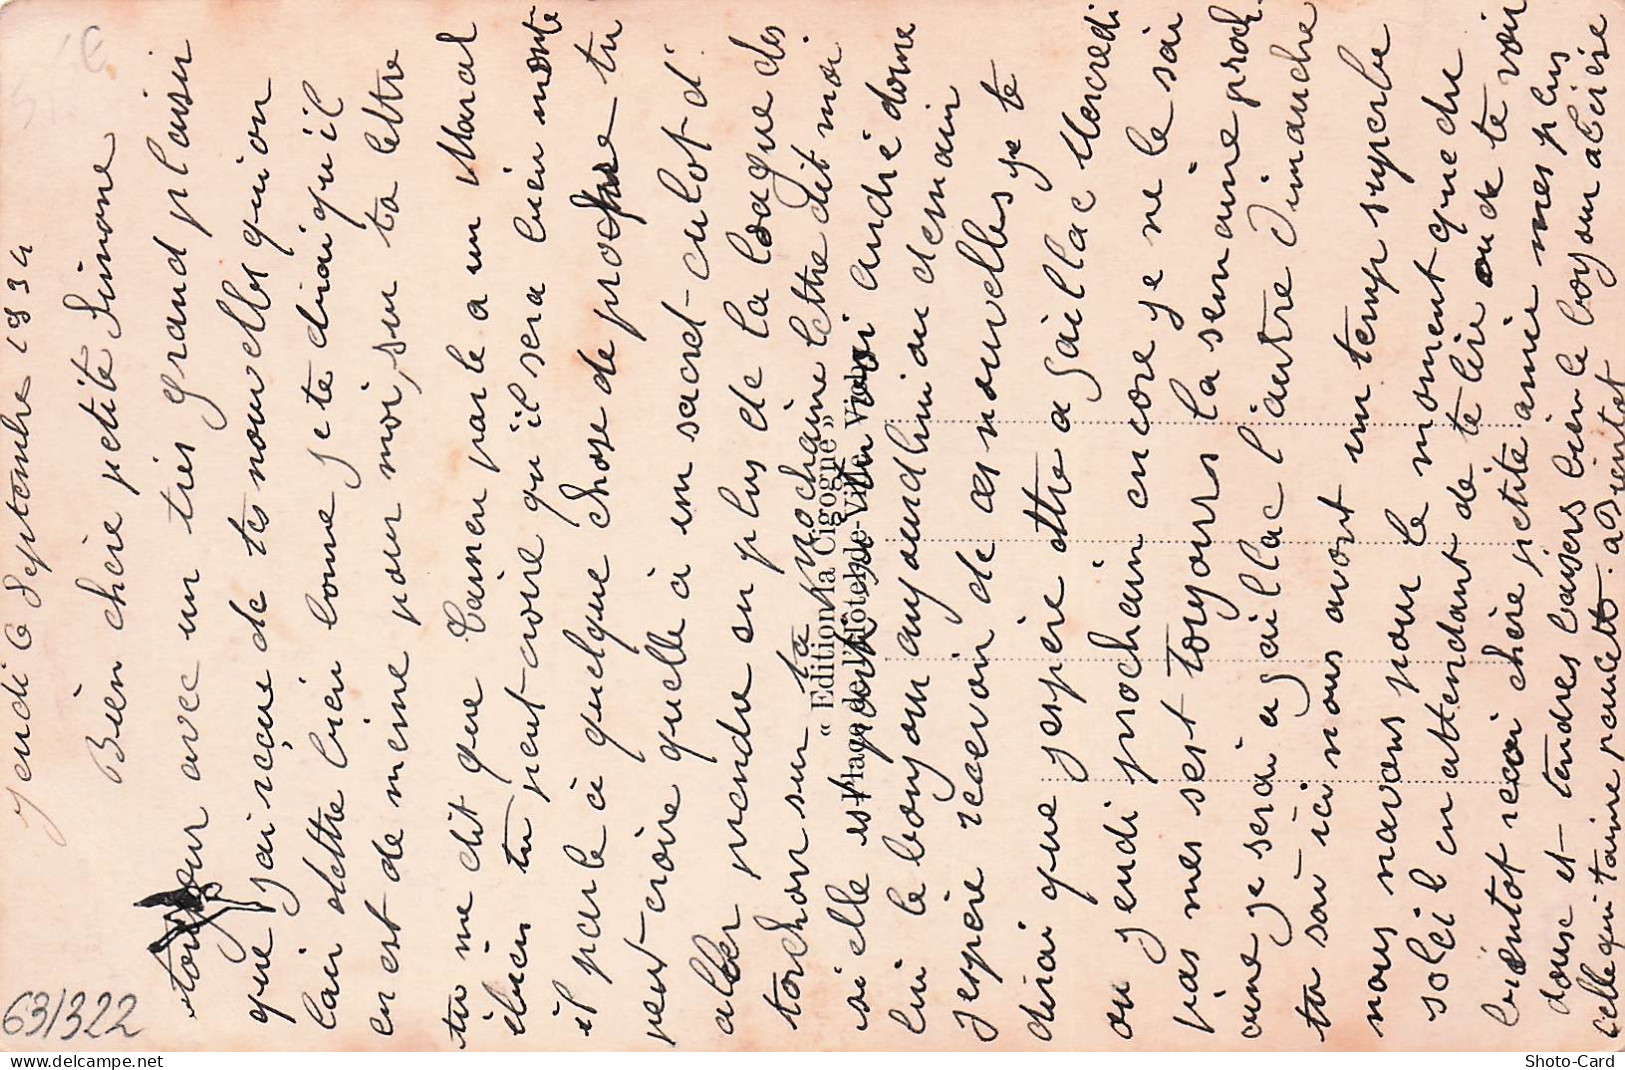 Jeudi 6 Septembre 1934
Bien chère petite Simone
toujour avec un tres grand plaisir
que jai reçue de tes nouvelles qui on
lair dettre bien bonne je te dirai qu'il
en est de meme pour moi, sur ta lettre
tu me dit que Carmen parle a un Marcel
ebien tu peut croire qu'il sera bien monté
il parle à quelque chose de propre tu
peut croire quelle à un sacret-culot d'
aller prendre en plus de la bague des
torchons sur ta prochaine lettre dit moi
si elle est parti su Villa voir andré donne
lui le bonjour aujourdhui ou demain
jespère recevoir de ces nouvelles je te
dirai que jespère ettre a gaillac Mercredi
ou jeudi prochain encore je ne le sai
pas mes sest toujours la semaine proch-
aine je serai a gaillac l'autre Dimanche
tu sai ici nous avont un temp superbe
nous navons pour le moment que du
soleil en attendant de te lire ou de te voir
bientot recoi chère petite amie mes plus
douse et tendres baisers bien le bonjour a
celle qui taime poucette. a Bientot
« Edition la Cigogne »
Place de l'Hôtel-de-Ville, Vichy
63/322
Shoto-Card
delcampe.net